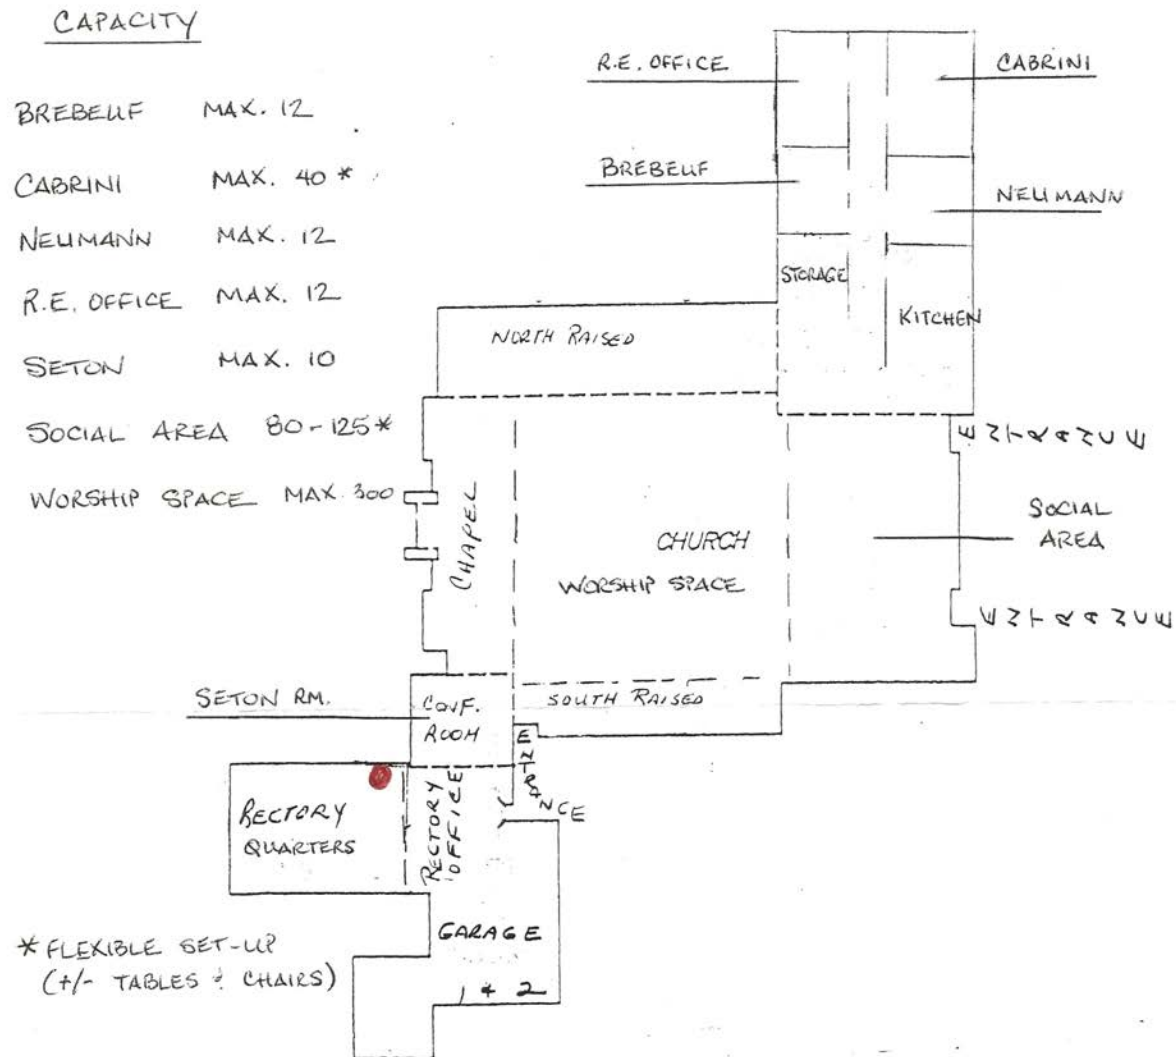 CAPACITY
BREBEUF MAX. 12
CABRINI MAX. 40 *
NEUMANN MAX. 12
R.E. OFFICE MAX. 12
SETON MAX. 10
SOCIAL AREA 80-125*
WORSHIP SPACE MAX. 300
R.E. OFFICE
CABRINI
BREBEUF
NEUMANN
STORAGE
KITCHEN
NORTH RAISED
ENTRANCE
CHAPEL
CHURCH
WORSHIP SPACE
SOCIAL
AREA
ENTRANCE
SETON RM.
CONF.
ROOM
SOUTH RAISED
ENTRANCE
RECTORY
QUARTERS
RECTORY
OFFICE
GARAGE
1 & 2
* FLEXIBLE SET-UP
(+/- TABLES & CHAIRS)